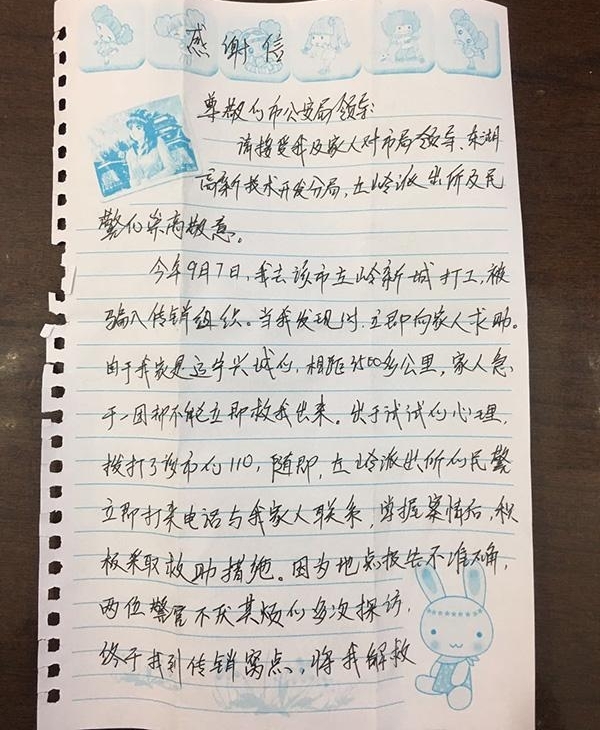 感谢信
尊敬的市公安局领导:
请接受我及家人对市局领导、东湖
高新技术开发分局,左岭派出所及民
警们崇高敬意。
今年9月7日,我去该市左岭新城打工,被
骗入传销组织。当我发现时,立即向家人求助。
由于我家是辽宁兴城的,相距2500多公里,家人急
于一团却不能立即救我出来。出于试试的心理,
拨打了该市的110,随即,左岭派出所的民警
立即打来电话与我家人联系,掌握案情后,积
极采取救助措施。因为地点报告不准确,
两位警官不厌其烦的多次探访,
终于找到传销窝点,将我解救